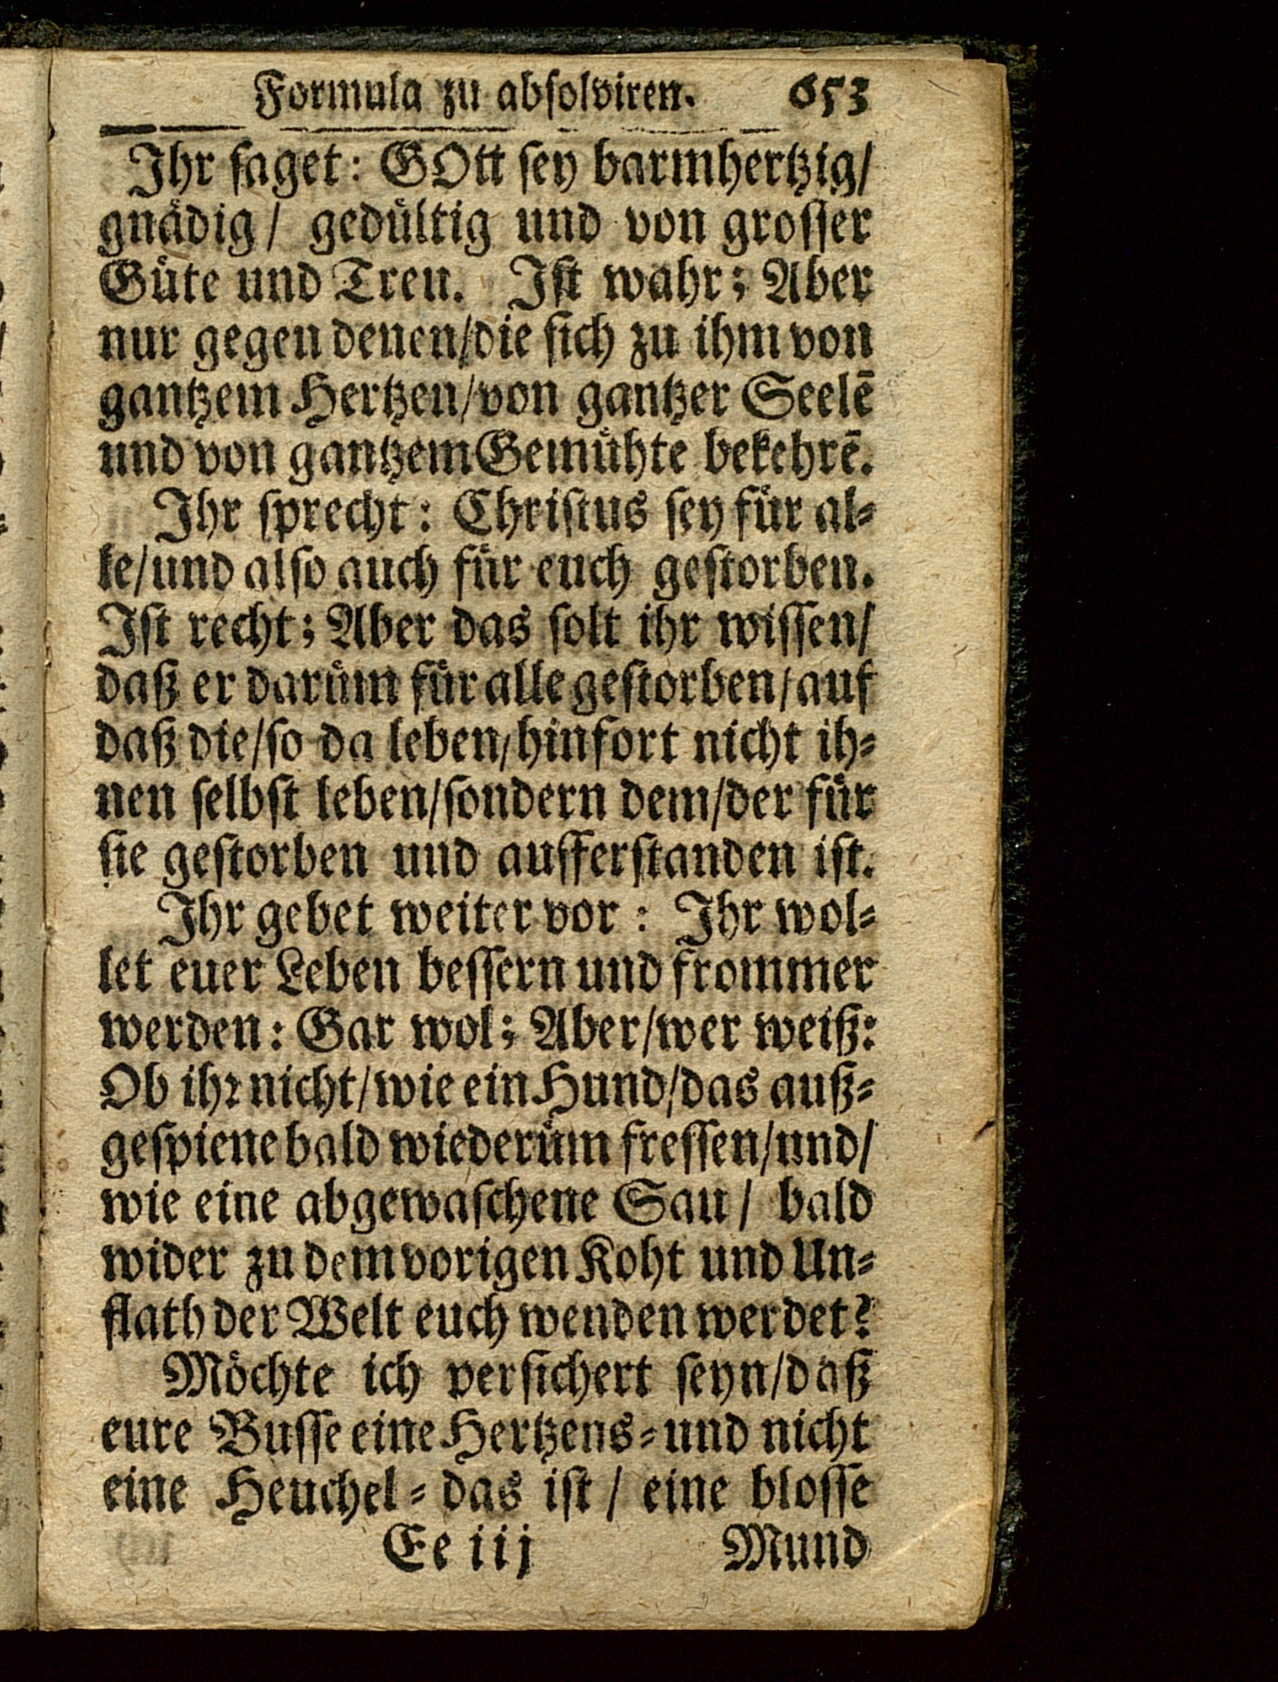 Formula zu absolviren. 653
Ihr saget: GOtt sey barmhertzig/
gnådig/ gedůltig und von grosser
Gůte und Treu. Ist wahr; Aber
nur gegen denen/die sich zu ihm von
gantzem Hertzen/von gantzer Seelē
und von gantzem Gemůhte bekehrē.
Ihr sprecht: Christus sey fůr al-
le/und also auch fůr euch gestorben.
Ist recht; Aber das solt ihr wissen/
daß er darům fůr alle gestorben/auf
daß die/so da leben/hinfort nicht ih-
nen selbst leben/sondern dem/der fůr
sie gestorben und aufferstanden ist.
Ihr gebet weiter vor: Ihr wol-
let euer Leben bessern und frommer
werden: Gar wol; Aber/wer weiß:
Ob ihr nicht/wie ein Hund/das auß-
gespiene bald wiederům fressen/und/
wie eine abgewaschene Sau/ bald
wider zu dem vorigen Koht und Un-
flath der Welt euch wenden werdet?
Mőchte ich versichert seyn/daß
eure Busse eine Hertzens-und nicht
eine Heuchel-das ist/ eine blosse
Ee iij Mund